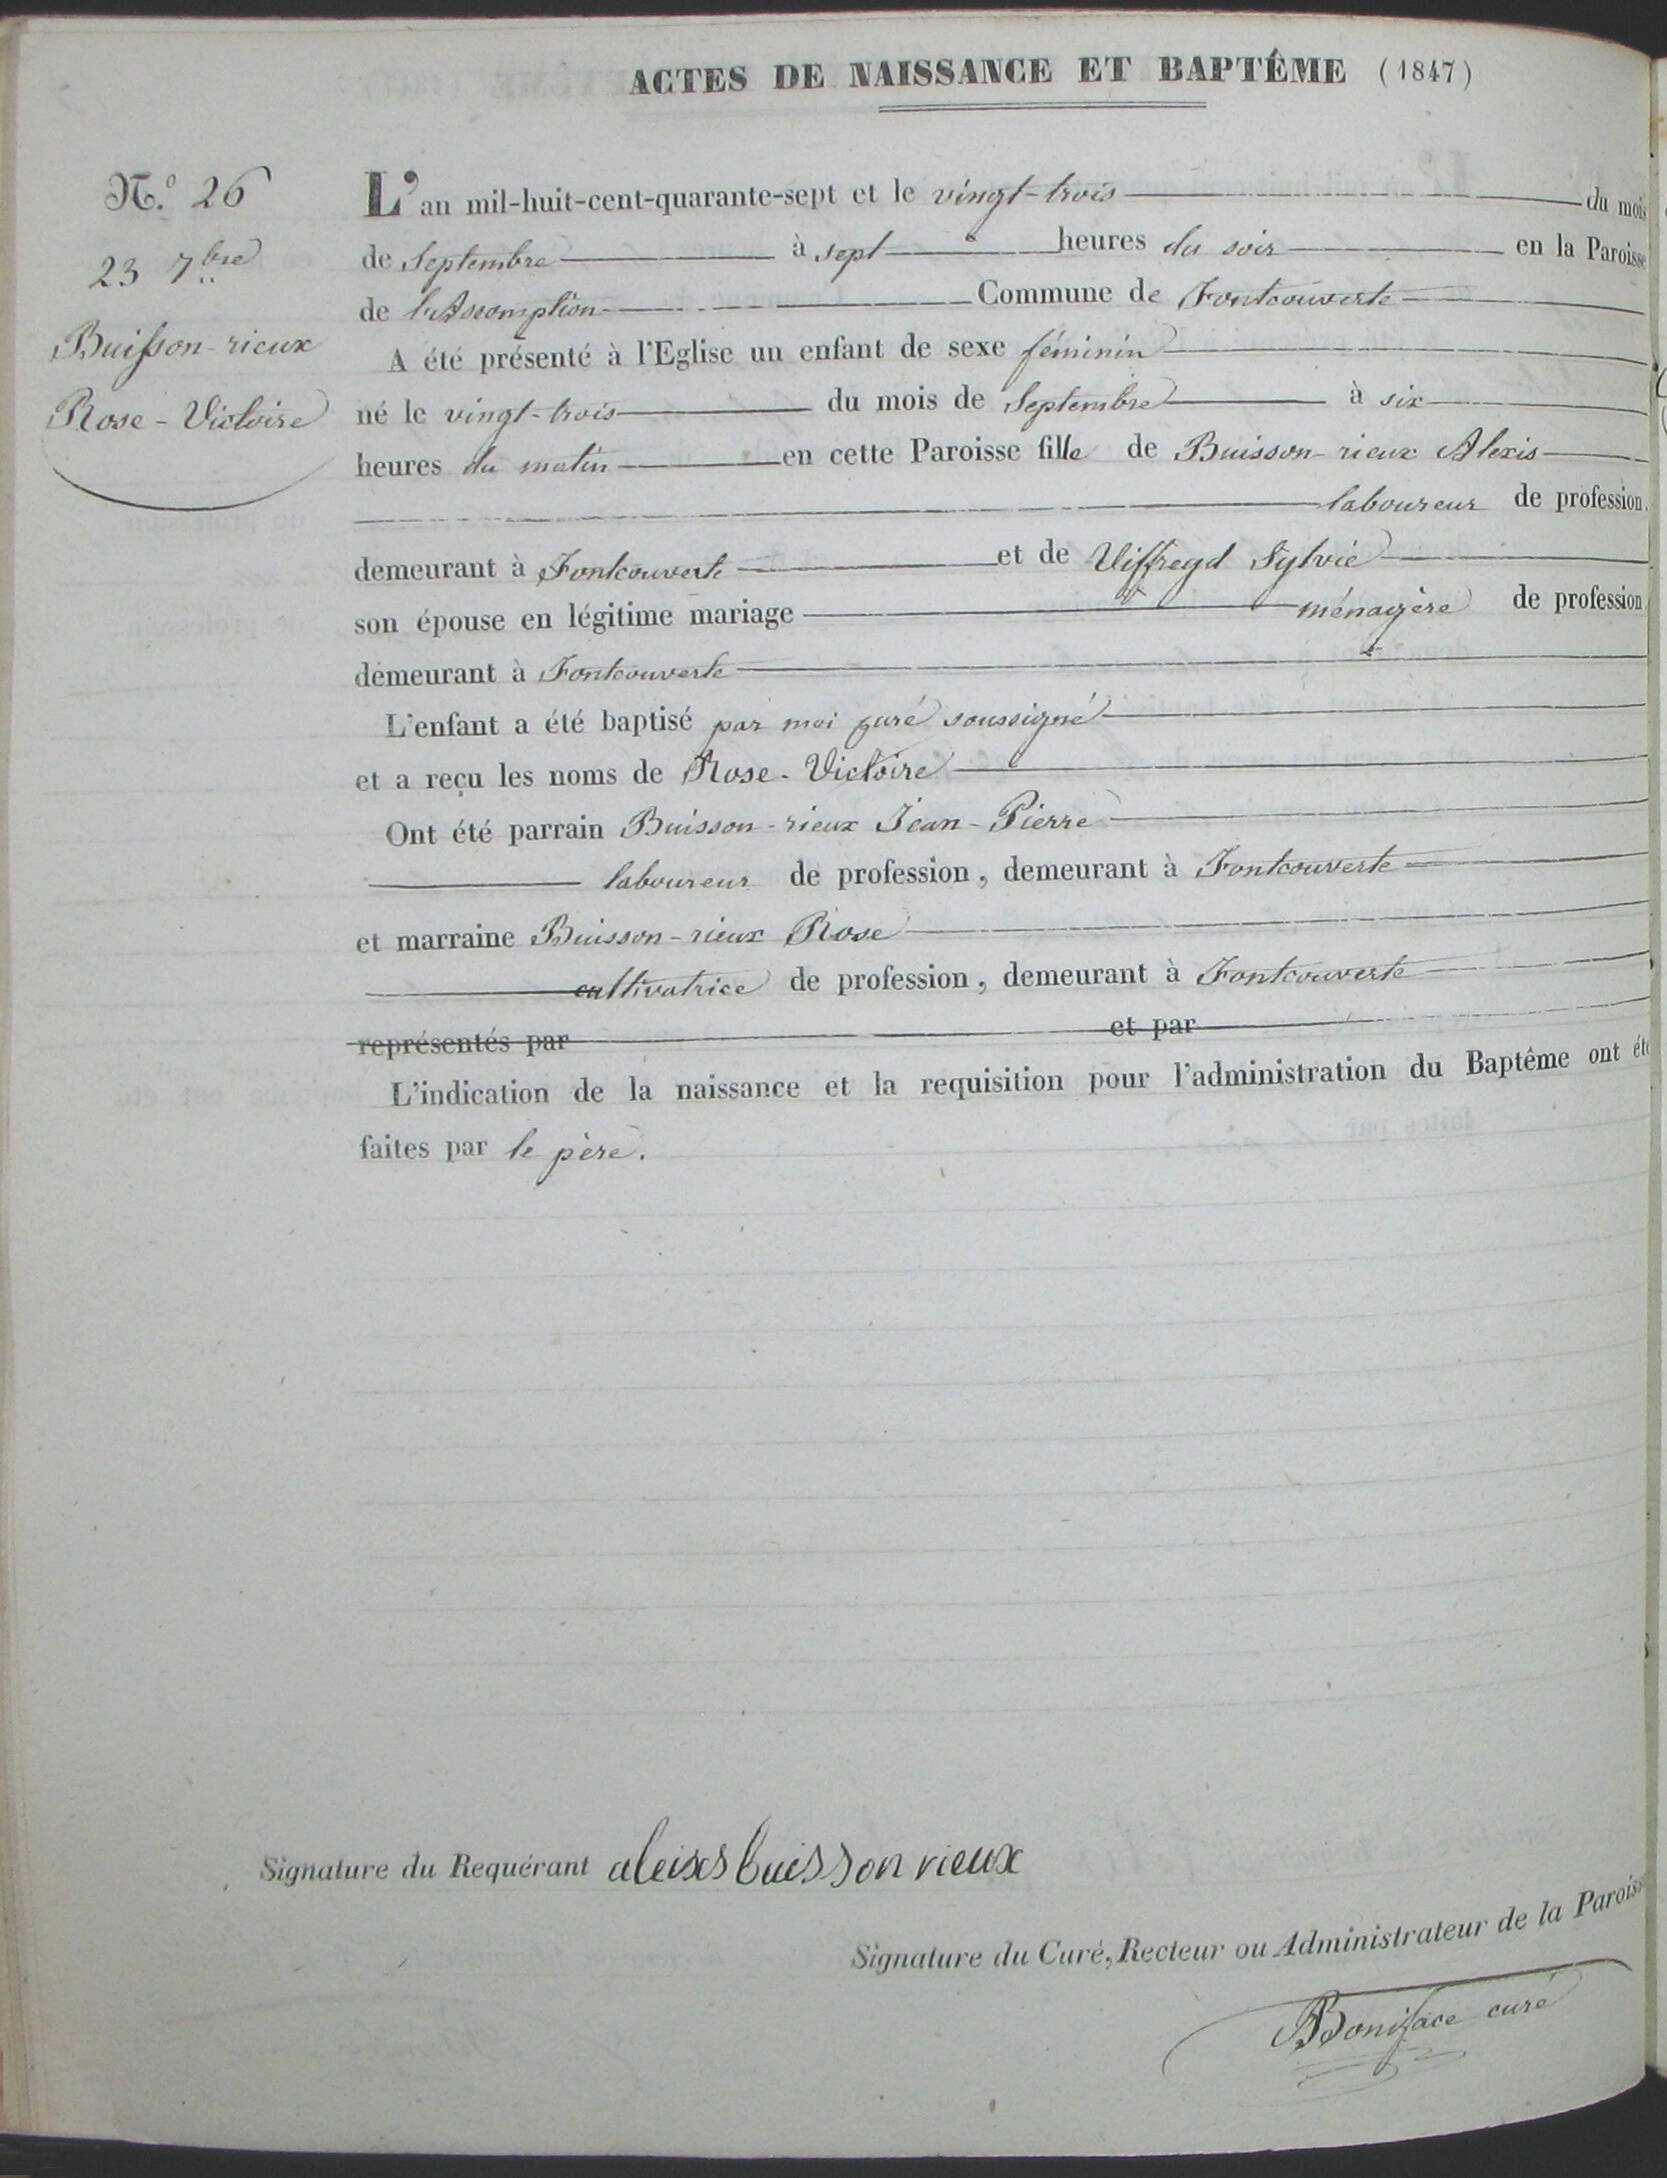 ACTES DE NAISSANCE ET BAPTÊME (1847)
N.º 26
23 7bre
Buisson-rieux
Rose-Victoire
L'an mil-huit-cent-quarante-sept et le vingt-trois du mois
de Septembre à sept heures du soir en la Paroisse
de l'Assomption Commune de Fontcouverte
A été présenté à l'Eglise un enfant de sexe féminin
né le vingt-trois du mois de Septembre à six
heures du matin en cette Paroisse fille de Buisson-rieux Alexis
laboureur de profession.
demeurant à Fontcouverte et de Viffreyd Sylvie
son épouse en légitime mariage ménagère de profession
demeurant à Fontcouverte
L'enfant a été baptisé par moi curé soussigné
et a reçu les noms de Rose-Victoire
Ont été parrain Buisson-rieux Jean-Pierre
laboureur de profession, demeurant à Fontcouverte
et marraine Buisson-rieux Rose
cultivatrice de profession, demeurant à Fontcouverte
représentés par et par
L'indication de la naissance et la requisition pour l'administration du Baptême ont été
faites par le père.
Signature du Requérant aleixs buisson rieux
Signature du Curé, Recteur ou Administrateur de la Paroisse
Boniface curé